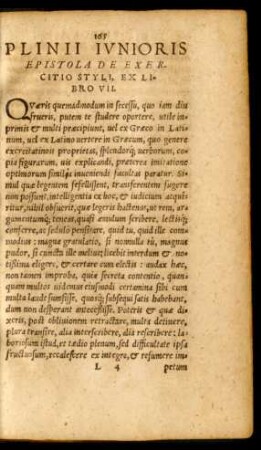 165
PLINII IVNIORIS
EPISTOLA DE EXER-
CITIO STYLI, EX LI-
BRO VII.
QVæris quemadmodum in secessu, quo iam diu
frueris, putem te studere oportere, utile in-
primis & multi præcipiunt, uel ex Græco in Lati-
num, uel ex Latino uertere in Græcum, quo genere
exercitationis proprietas, splendorq́; uerborum, co-
pia figurarum, uis explicandi, præterea imitatione
optimorum similiū inueniendi facultas paratur. Si-
mul quæ legentem fefellissent, transferentem fugere
non possunt, intelligentia ex hoc, & iudicium acqui-
ritur, nihil obfuerit, quæ legeris hactenus, ut rem, ar-
gumentumq́; teneas, quasi æmulum scribere, lectisq́;
conferre, ac sedulo pensitare, quid tu, quid ille com-
modius: magna gratulatio, si nonnulla tu, magnus
pudor, si cuncta ille melius: licebit interdum & no-
tissima eligere, & certare cum electis: audax hæc,
non tamen improba, quia secreta contentio, quan-
quam multos uidemus eiusmodi certamina sibi cum
multa laude sumsisse, quosq́; subsequi satis habebant,
dum non desperant antecessisse. Poteris & quæ di-
xeris, post obliuionem retractare, multa detinere,
plura transire, alia interscribere, alia rescribere: la-
boriosum istud, et tædio plenum, sed difficultate ipsa
fructuosum, recalescere ex integro, & resumere im-
L 4 petum